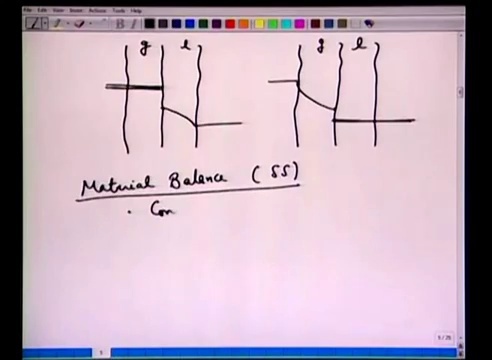 File Edit View Insert Actions Tools Help
g l g l
Material Balance (SS)
. Con
5